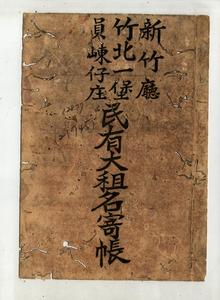 新竹廳
竹北一堡
員崠仔庄
民有大租名寄帳